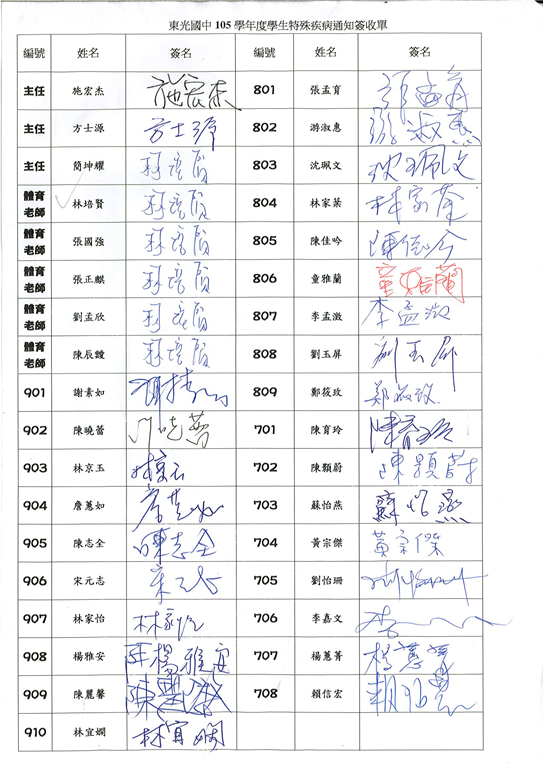 東光國中 105 學年度學生特殊疾病通知簽收單
編號 姓名 簽名 編號 姓名 簽名
主任 施宏杰 施宏杰 801 張孟育
主任 方士源 方士源 802 游淑惠 游淑惠
主任 簡坤耀 林培賢 803 沈珮文 沈珮文
體育老師 林培賢 林培賢 804 林家棻 林家棻
體育老師 張國強 林培賢 805 陳佳吟 陳佳吟
體育老師 張正麒 林培賢 806 童雅蘭 童雅蘭
體育老師 劉孟欣 林培賢 807 李孟激 李孟激
體育老師 陳辰謢 林培賢 808 劉玉屏 劉玉屏
901 謝素如 809 鄭筱玫 鄭筱玫
902 陳曉蕾 701 陳育玲 陳育玲
903 林京玉 林京玉 702 陳穎蔚 陳穎蔚
904 詹蕙如 703 蘇怡燕 蘇怡燕
905 陳志全 陳志全 704 黃宗傑 黃宗傑
906 宋元志 宋元志 705 劉怡珊
907 林家怡 林家怡 706 李嘉文
908 楊雅安 楊雅安 707 楊蕙菁 楊蕙菁
909 陳麗馨 708 賴信宏
910 林宜嫻 林宜嫻